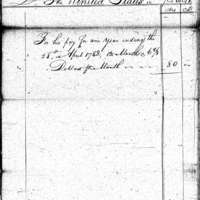 The United States
For his pay for one year ending the
28th April 1783, 12 Months 6⅔
Dollars per Month 80